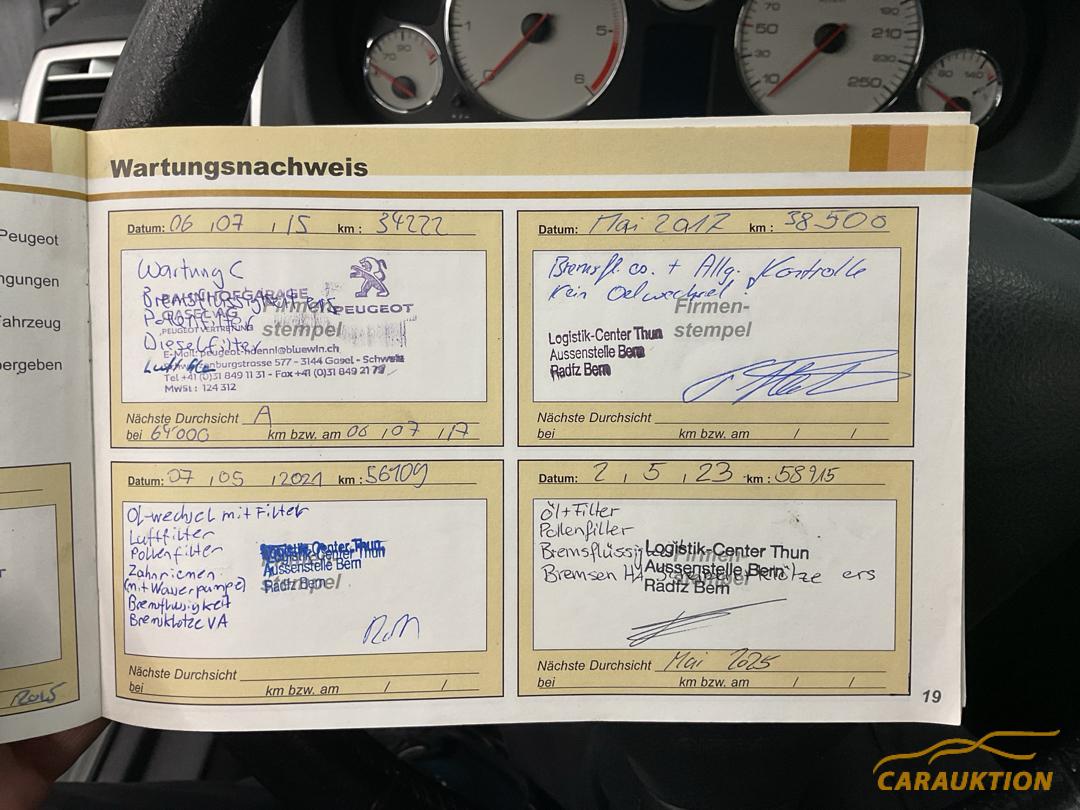 70 90
1
0
5
6
70
50
10
190
210
230
250
80 140
Peugeot
ngungen
Fahrzeug
ergeben
2015
Wartungsnachweis
Datum: 06 , 07 , 15 km : 34222
Wartung C
BAHNHOFGARAGE
Bremsflüssigkeit
GASEL AG
Pollenfilter
PEUGEOTVERTRETUNG
Dieselfilter
PEUGEOT
Firmen-
stempel
E-Mail: peugeot-haenni@bluewin.ch
Luftfilter
Schwarzenburgstrasse 577 - 3144 Gasel - Schweiz
Tel +41 (0)31 849 11 31 - Fax +41 (0)31 849 21 79
MwSt : 124 312
Nächste Durchsicht A
bei 64000 km bzw. am 06 , 07 , 17
Datum: Mai 2017 km : 38.500
Bremsfl. co. + Allg. Kontrolle
Kein Oelwechsel !
Firmen-
stempel
Logistik-Center Thun
Aussenstelle Bern
Radfz Bern
Nächste Durchsicht
bei km bzw. am / /
Datum: 07 , 05 , 2021 km : 56109
Öl-wechsel mit Filter
Luftfilter
Pollenfilter
Zahnriemen
(mit Wasserpumpe)
Bremsflüssigkeit
Bremsklötze VA
Logistik-Center Thun
Aussenstelle Bern
Radfz Bern
stempel
Nächste Durchsicht
bei km bzw. am / /
Datum: 2 , 5 , 23 km : 58915
Öl + Filter
Pollenfilter
Bremsflüssig
Bremsen HA
ers
Logistik-Center Thun
Aussenstelle Bern
Radfz Bern
Nächste Durchsicht Mai 2025
bei km bzw. am / /
19
CARAUKTION